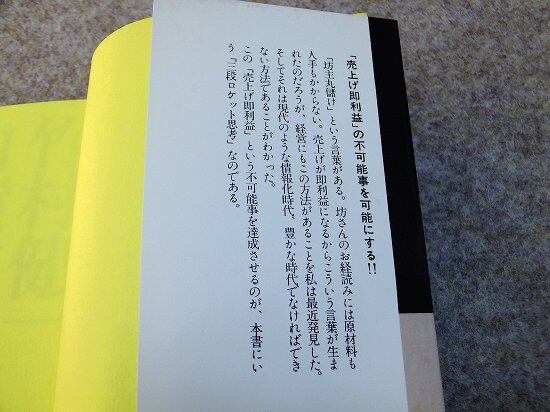 「売上げ即利益」の不可能事を可能にする!!
「坊主丸儲け」という言葉がある。坊さんのお経読みには原材料も
人手もかからない。売上げが即利益になるからこういう言葉が生ま
れたのだろうが、経営にもこの方法があることを私は最近発見した。
そしてそれは現代のような情報化時代、豊かな時代でなければでき
ない方法であることがわかった。
この「売上げ即利益」という不可能事を達成させるのが、本書にい
う「三段ロケット思考」なのである。